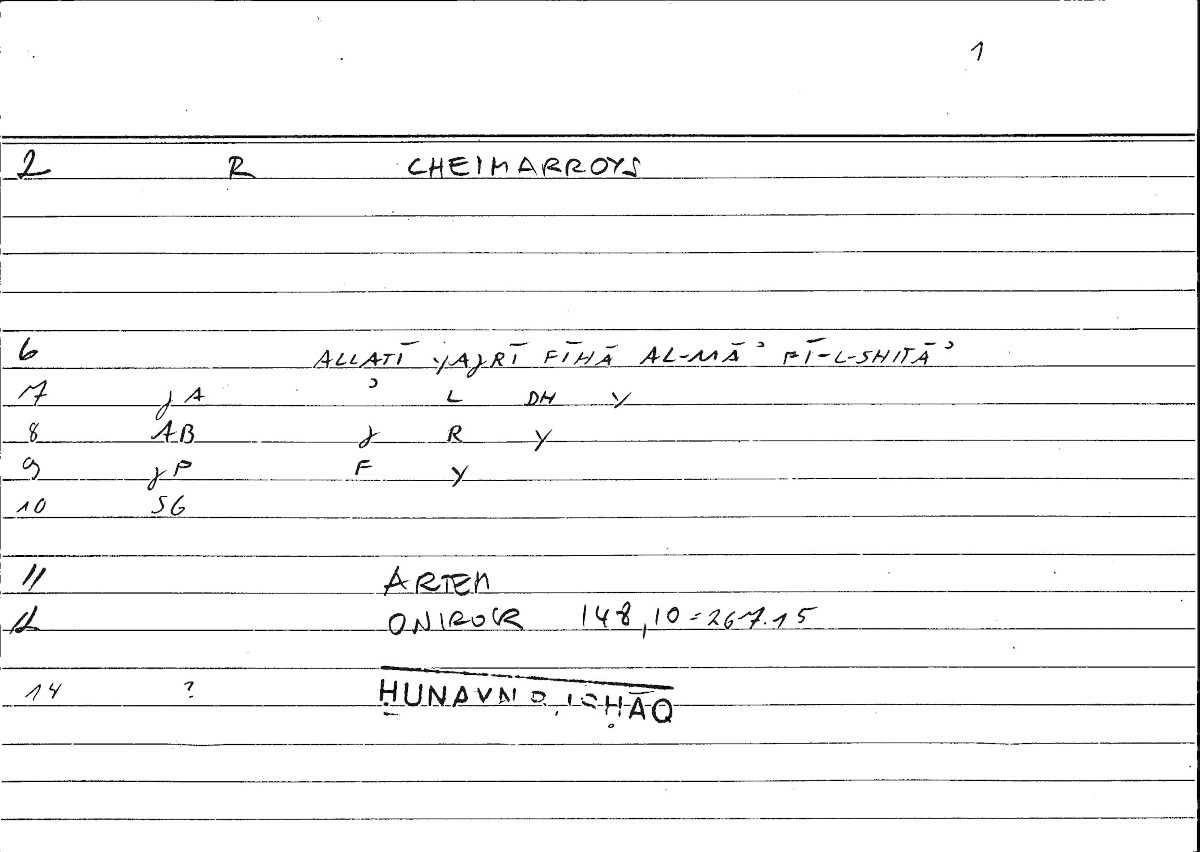 1
2 R CHEIMARROYS
6 ALLATĪ YAJRĪ FĪHĀ AL-MĀʾ FĪ-L-SHITĀʾ
7 JA ʾ L DH Y
8 AB J R Y
9 JP F Y
10 SG
11 ARTEM
12 ONIROCR 148,10=267.15
14 ? ḤUNAYN B. ISḤĀQ